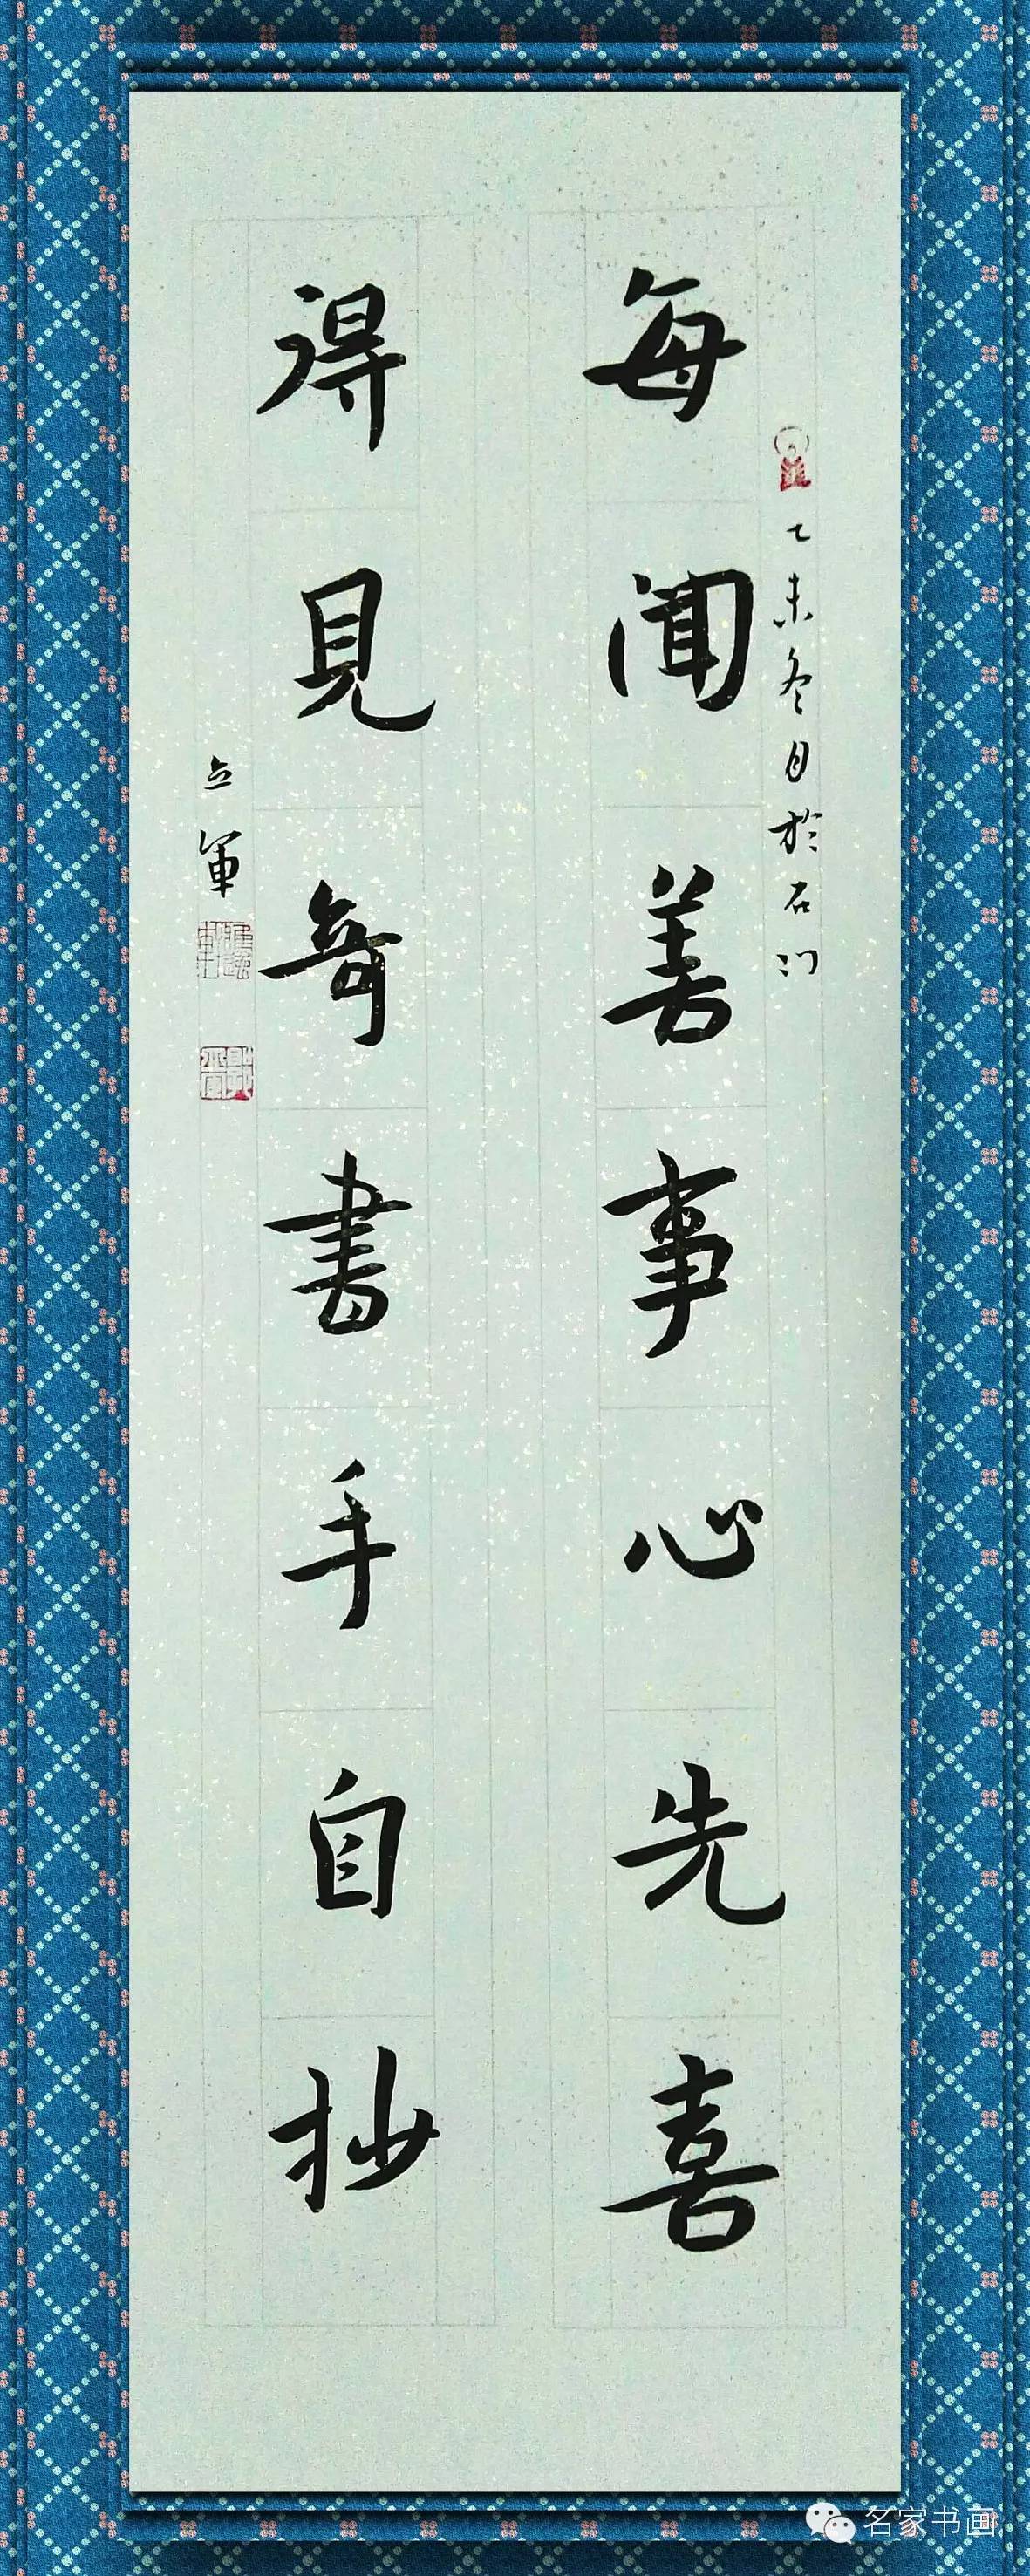 乙未冬月於石门
每聞善事心先喜
得見奇書手自抄
立軍
名家书画